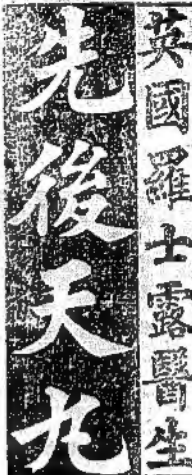 英國羅士露醫生
先後天九